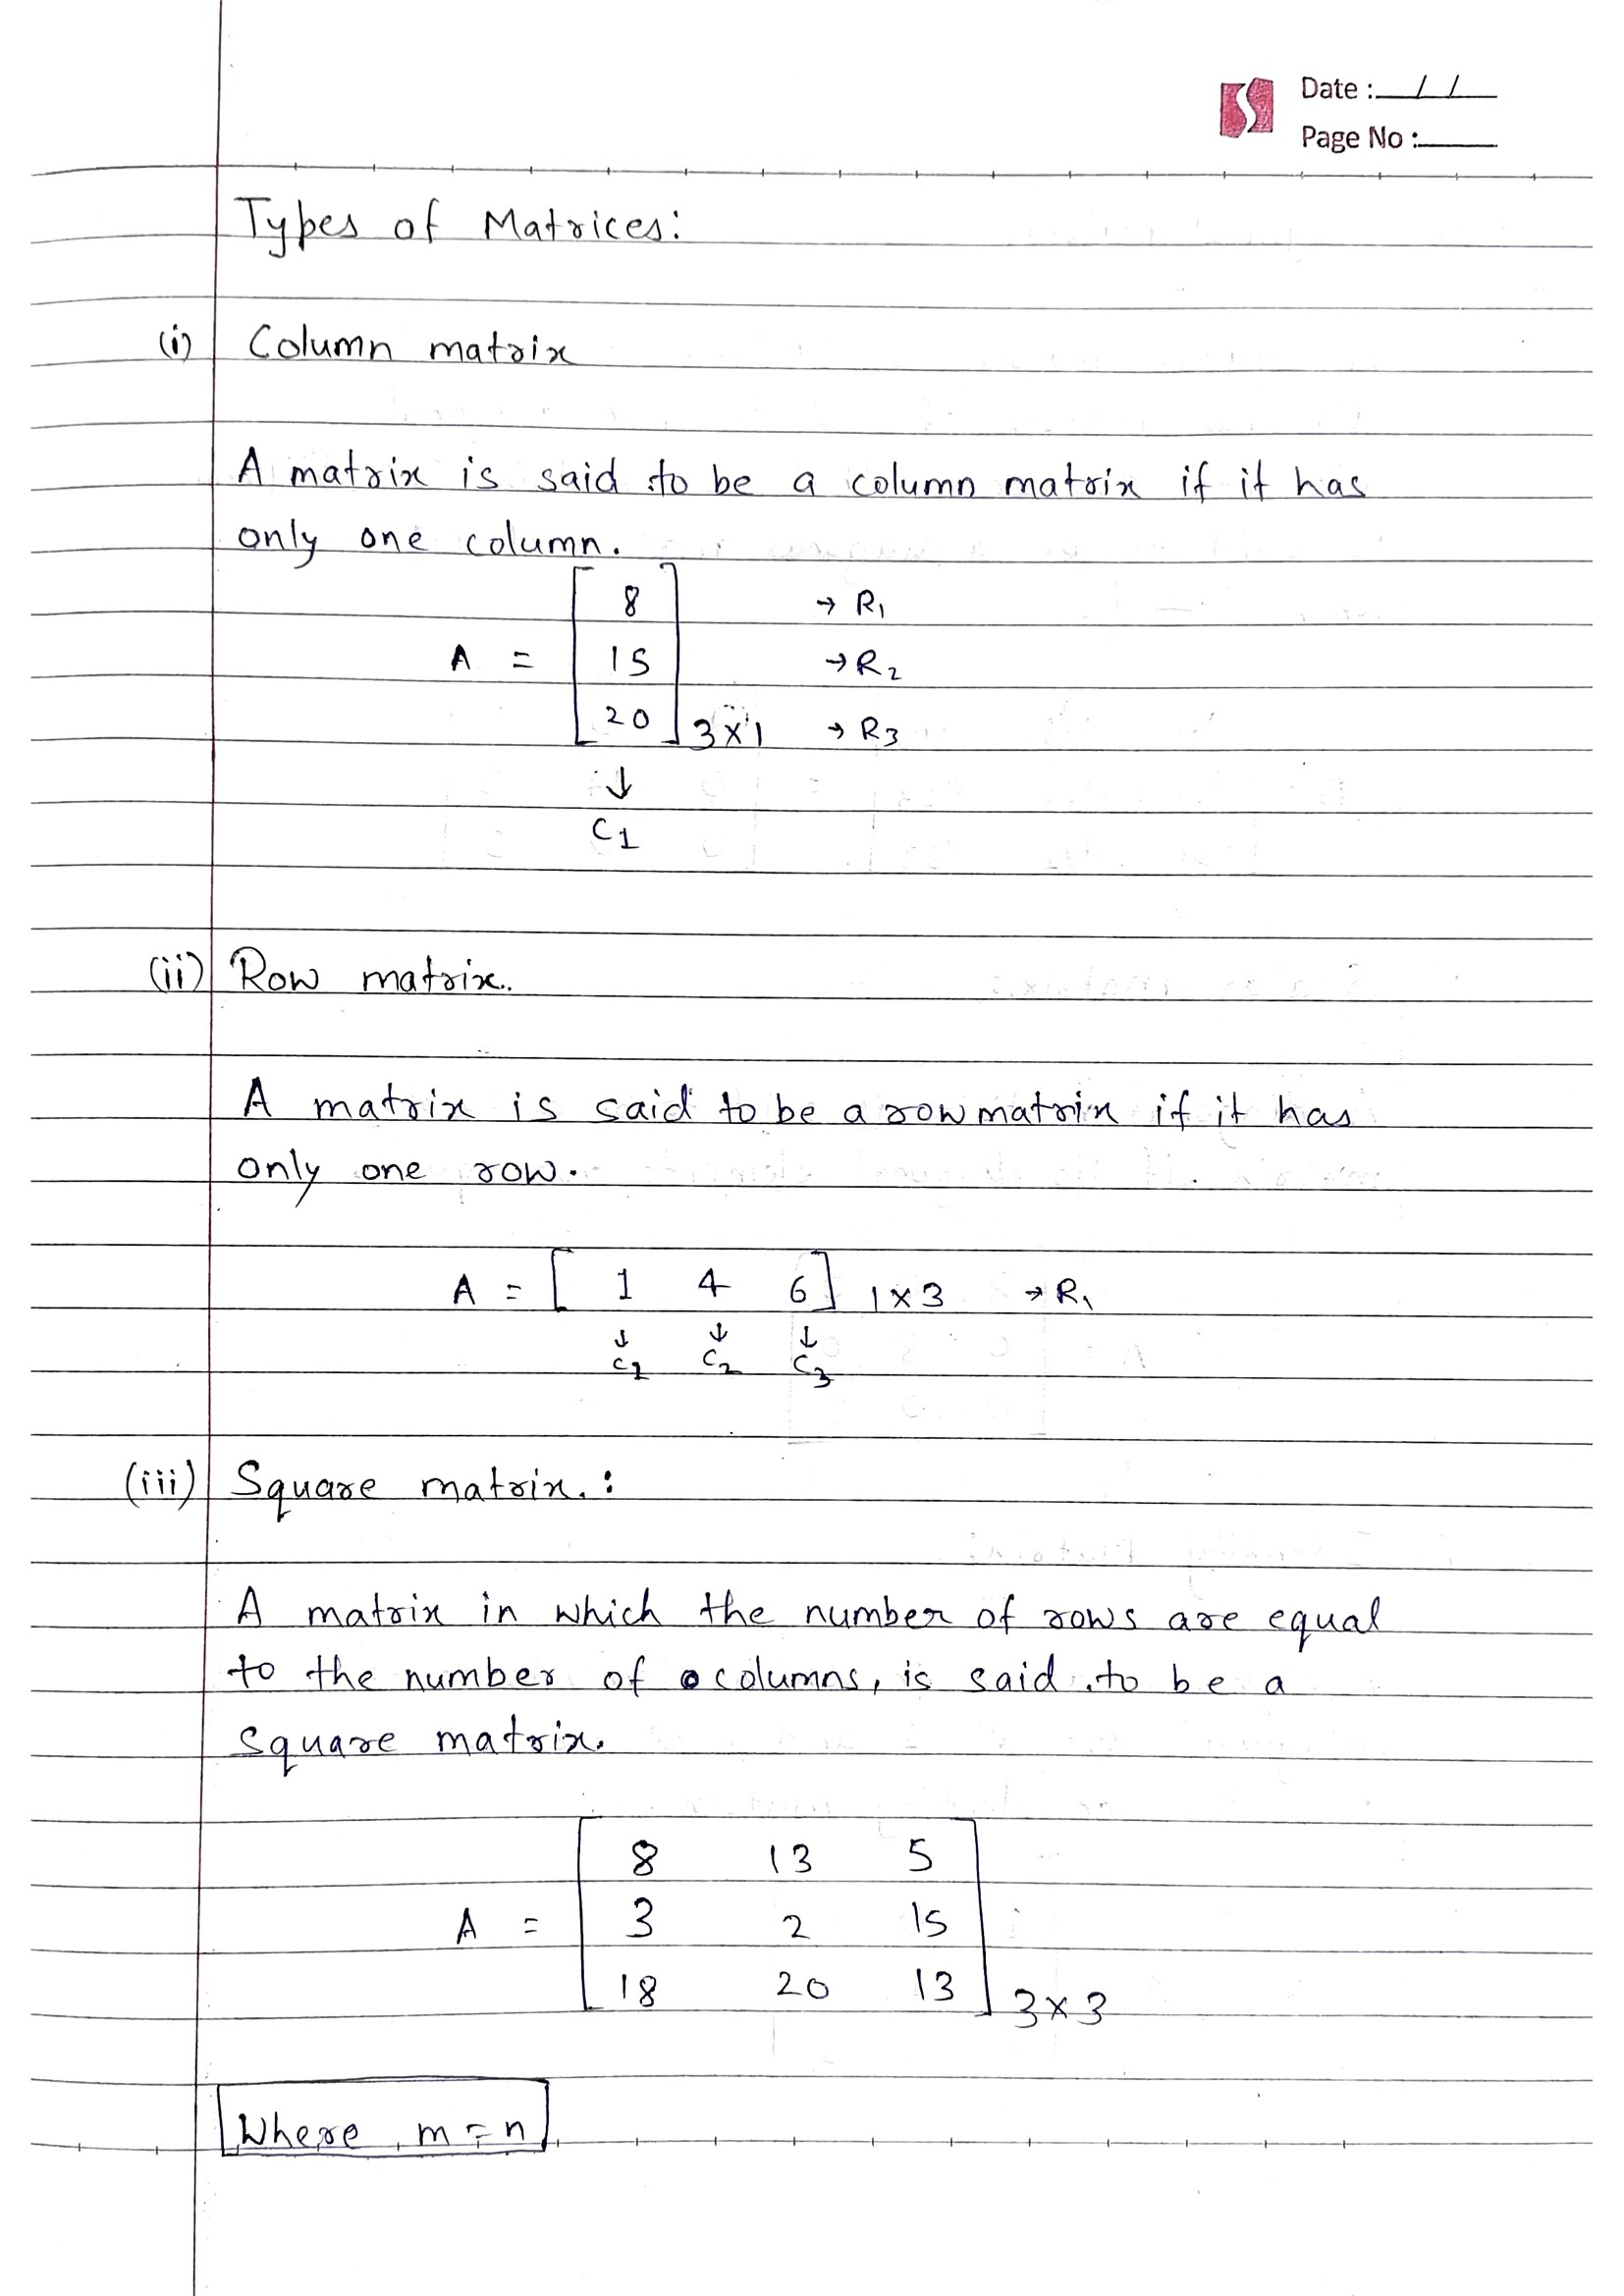 Date : / /
Page No :
Types of Matrices:
(i) Column matrix
A matrix is said to be a column matrix if it has
only one column.
8 → R1
A = 15 → R2
20 3×1 → R3
↓
C1
(ii) Row matrix.
A matrix is said to be a row matrix if it has
only one row.
A = [ 1 4 6 ] 1×3 → R1
↓ ↓ ↓
C1 C2 C3
(iii) Square matrix. :
A matrix in which the number of rows are equal
to the number of columns, is said to be a
square matrix.
8 13 5
A = 3 2 15
18 20 13 3×3
Where m = n